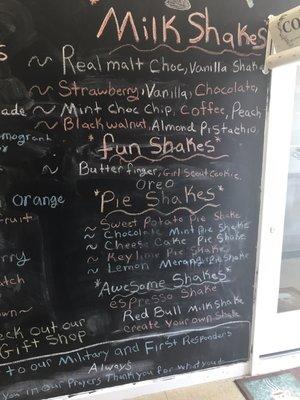 Milk Shakes
~ Real malt Choc, Vanilla Shake
~ Strawberry, Vanilla, Chocolate,
~ Mint Choc Chip, Coffee, Peach
~ Black walnut, Almond Pistachio
*fun Shakes*
~ Butterfinger, Girl Scout Cookie,
Oreo
*Pie Shakes*
~ Sweet Potato Pie Shake
~ Chocolate Mint Pie Shake
~ Cheese Cake Pie Shake
~ Key lime Pie Shake
~ Lemon Merange Pie Shake
*Awesome Shakes*
espresso Shake
Red Bull Milk Shake
Create your own Shake
orange
Gift Shop
to our Military and First Responders
Always
in our Prayers Thank you for what you do